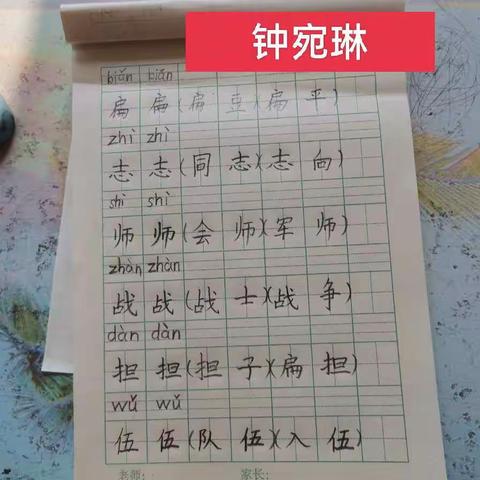 钟宛琳
biǎn biǎn
扁 扁(扁豆)(扁平)
zhì zhì
志 志(同志)(志向)
shī shī
师 师(会师)(军师)
zhàn zhàn
战 战(战士)(战争)
dàn dàn
担 担(担子)(扁担)
wǔ wǔ
伍 伍(队伍)(入伍)
老师: 家长: